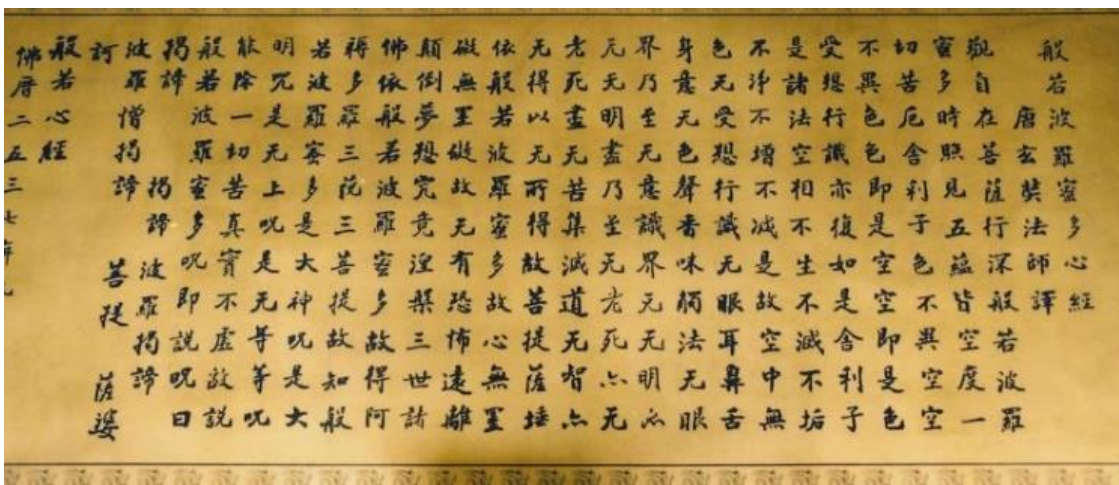 般若波羅蜜多心經
唐玄奘法師譯
觀自在菩薩行深般若波羅
蜜多時照見五蘊皆空度一
切苦厄舍利子色不異空空
不異色色即是空空即是色
受想行識亦復如是舍利子
是諸法空相不生不滅不垢
不淨不增不減是故空中無
色无受想行識无眼耳鼻舌
身意无色聲香味觸法无眼
界乃至无意識界无无明亦
无无明盡乃至无老死亦无
老死盡无苦集滅道无智亦
无得以无所得故菩提薩埵
依般若波羅蜜多故心無罣
礙無罣礙故无有恐怖遠離
顛倒夢想究竟涅槃三世諸
佛依般若波羅蜜多故得阿
耨多羅三藐三菩提故知般
若波羅蜜多是大神呪是大
明呪是无上呪是无等等呪
能除一切苦真實不虛故說
般若波羅蜜多呪即說呪曰
揭諦 揭諦 波羅揭諦
波羅僧揭諦 菩提 薩婆
訶
般若心經
佛曆二五三七年